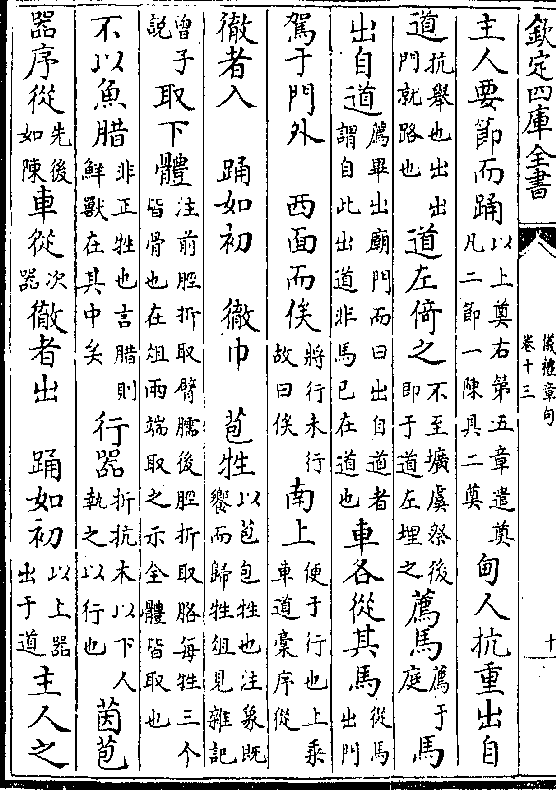 欽定四庫全書
儀禮章句
卷十三
十
主人要節而踊以上奠右第五章遣奠凡二節一陳具二奠甸人抗重出自
道抗舉也出出門就路也道左倚之不至壙虞祭後即于道左埋之薦馬薦于庭馬
出自道薦畢出廟門而曰出自道者謂自此出道非馬已在道也車各從其馬從馬出門
駕于門外　西面而俟將行未行故曰俟南上便于行也上乘車道槀序從
徹者入　踊如初　徹巾　苞牲以苞包牲也注象既饗而歸牲俎見雜記
曾子説取下體注前脛折取臂臑後脛折取胳每牲三个皆骨也在俎兩端取之示全體皆取也
不以魚腊非正牲也言腊則鮮獸在其中矣行器折抗木以下人執之以行也茵苞
器序從先後如陳車從次器徹者出　踊如初以上器出于道主人之